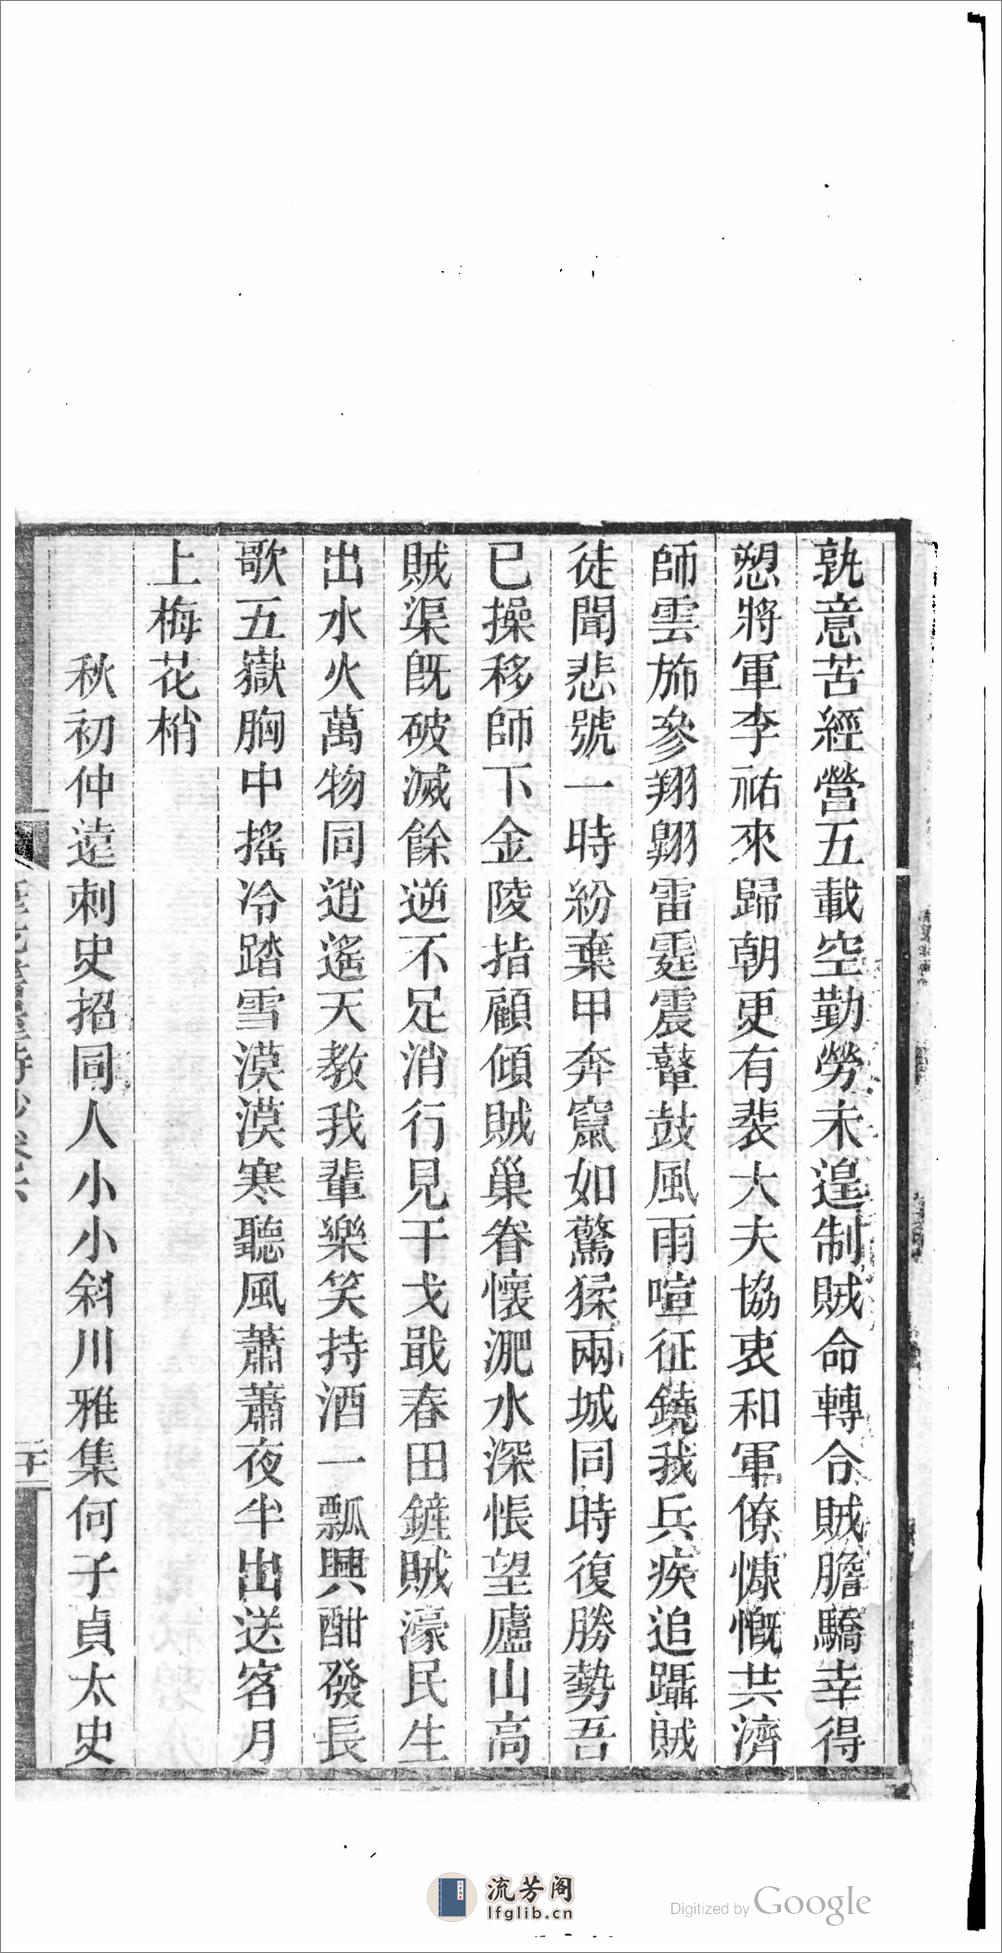 孰意苦經營五載空勤勞未遑制賊命轉令賊膽驕幸得
愬將軍李祐來歸朝更有裴大夫協衷和軍僚慷慨共濟
師雲斾參翔翺雷霆震鼙鼓風雨喧征鐃我兵疾追躡賊
徒聞悲號一時紛棄甲奔竄如驚猱兩城同時復勝勢吾
已操移師下金陵指顧傾賊巢眷懷淝水深悵望廬山高
賊渠既破滅餘逆不足消行見干戈戢春田鏟賊濠民生
出水火萬物同逍遙天教我輩樂笑持酒一瓢興酣發長
歌五嶽胸中搖冷踏雪漠漠寒聽風蕭蕭夜半出送客月
上梅花梢
秋初仲遠刺史招同人小小斜川雅集何子貞太史
流芳阁
lfglib.cn
Digitized by Google